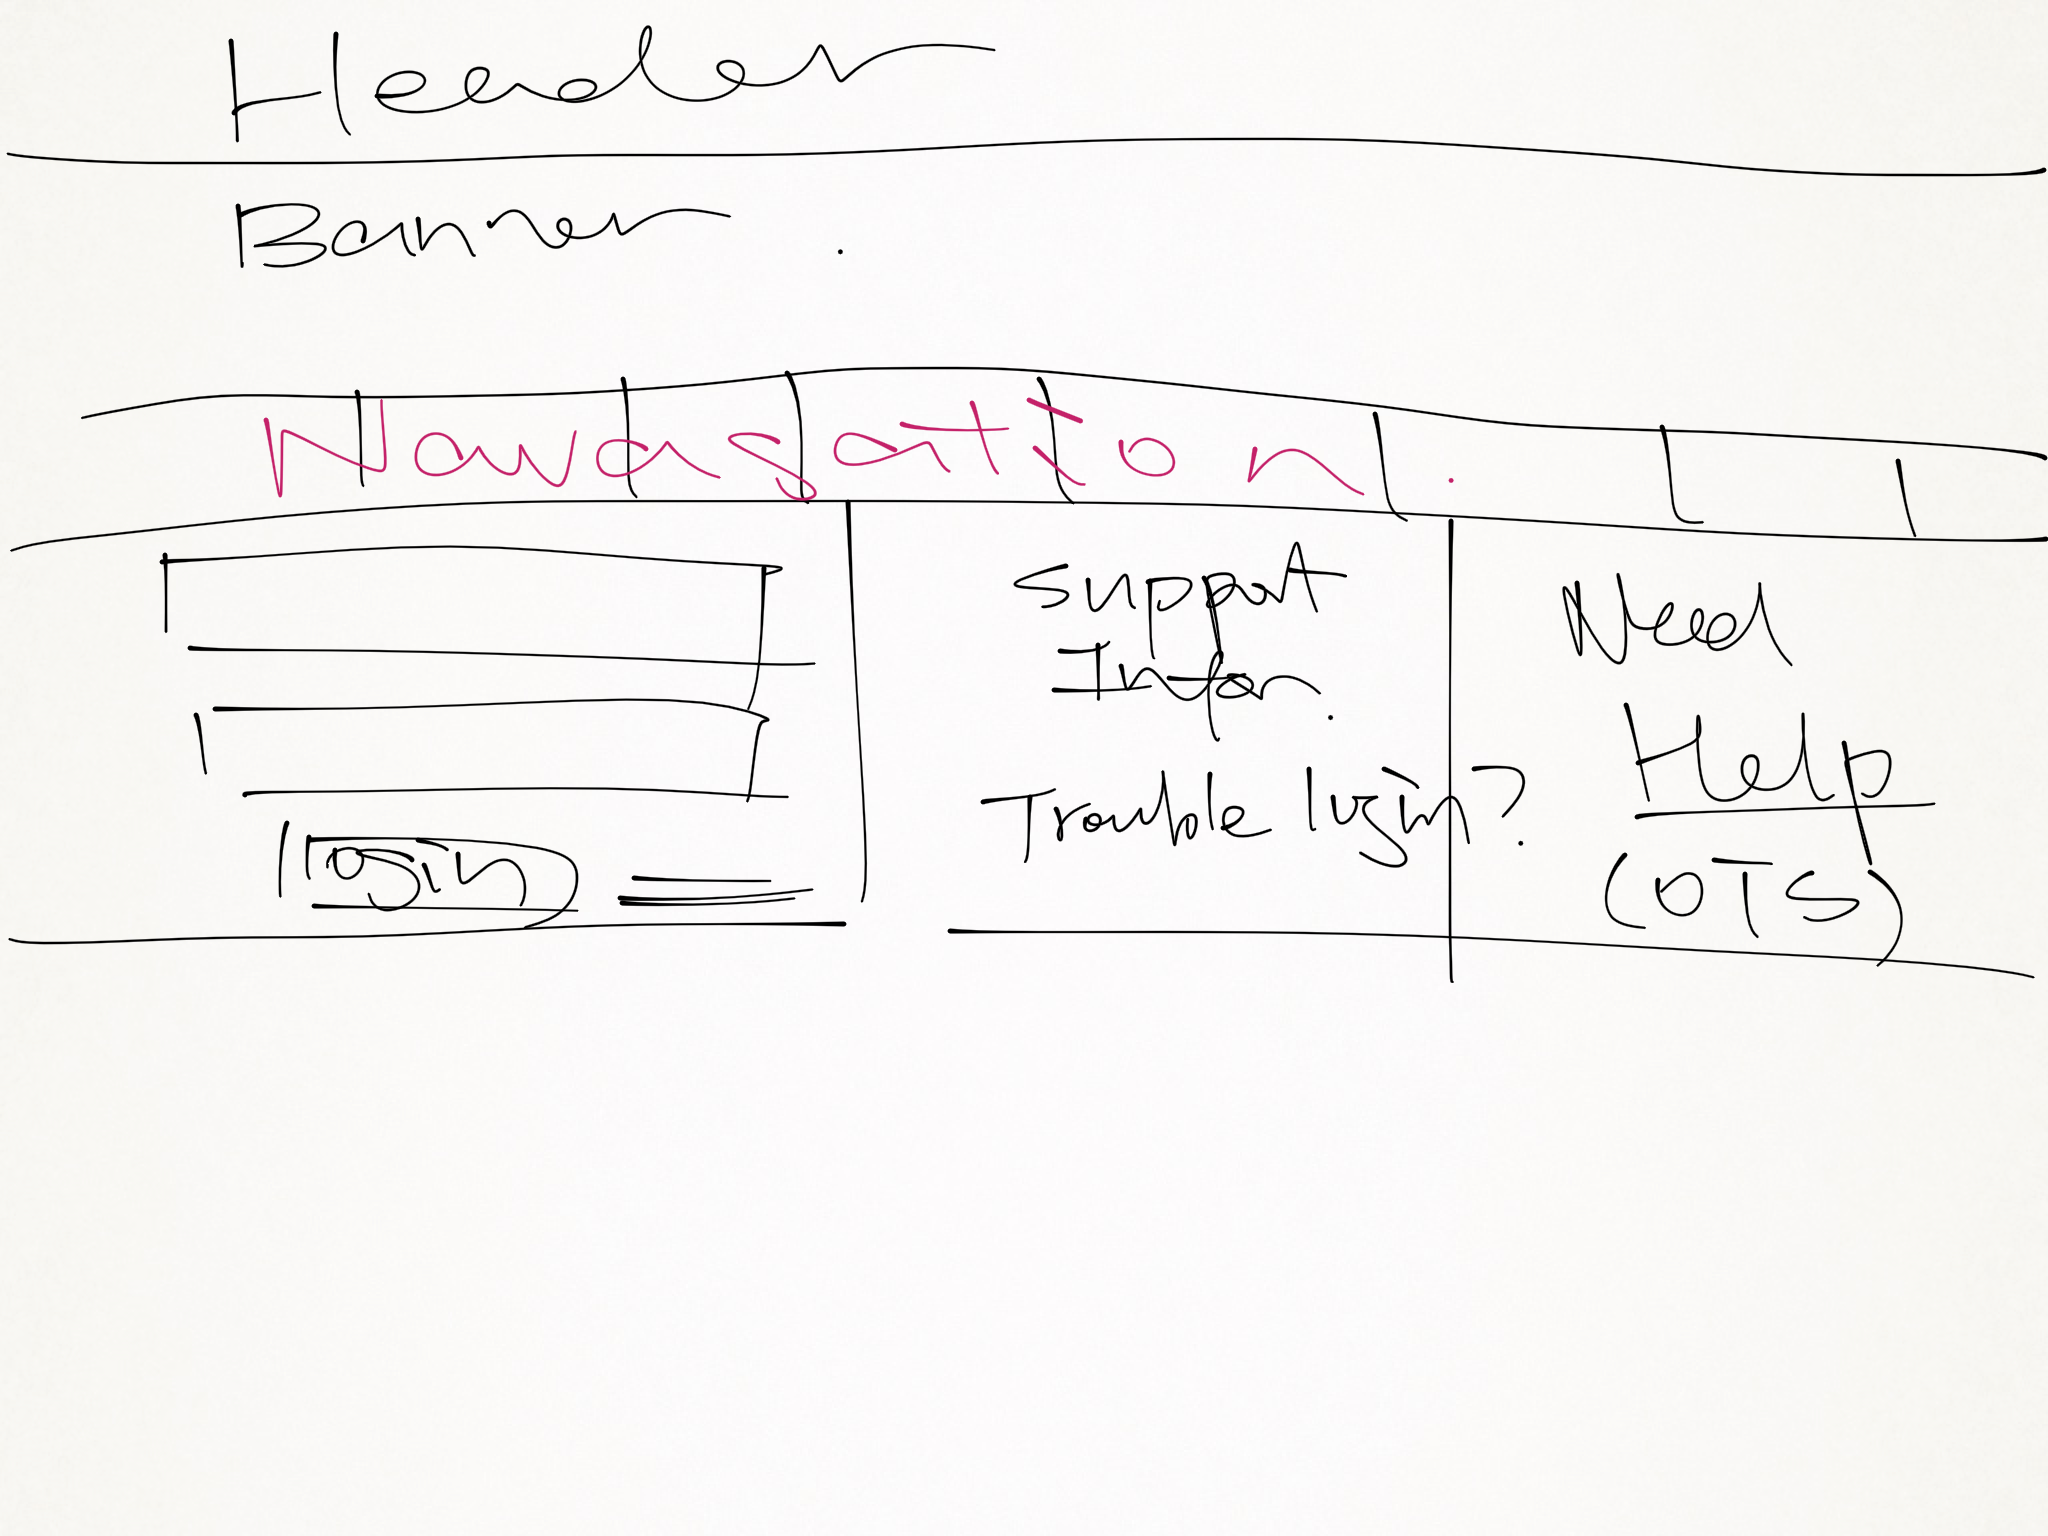 Header
Banner
Navagation
Support
Infor.
Trouble login?
login
Need
Help
(OTS)